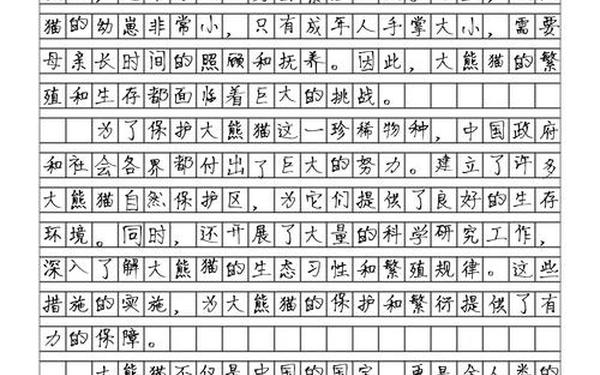 猫的幼崽非常小，只有成年人手掌大小，需要
母亲长时间的照顾和抚养。因此，大熊猫的繁
殖和生存都面临着巨大的挑战。
为了保护大熊猫这一珍稀物种，中国政府
和社会各界都付出了巨大的努力。建立了许多
大熊猫自然保护区，为它们提供了良好的生存
环境。同时，还开展了大量的科学研究工作，
深入了解大熊猫的生态习性和繁殖规律。这些
措施的实施，为大熊猫的保护和繁衍提供了有
力的保障。
大熊猫不仅是中国的国宝，更是全人类的